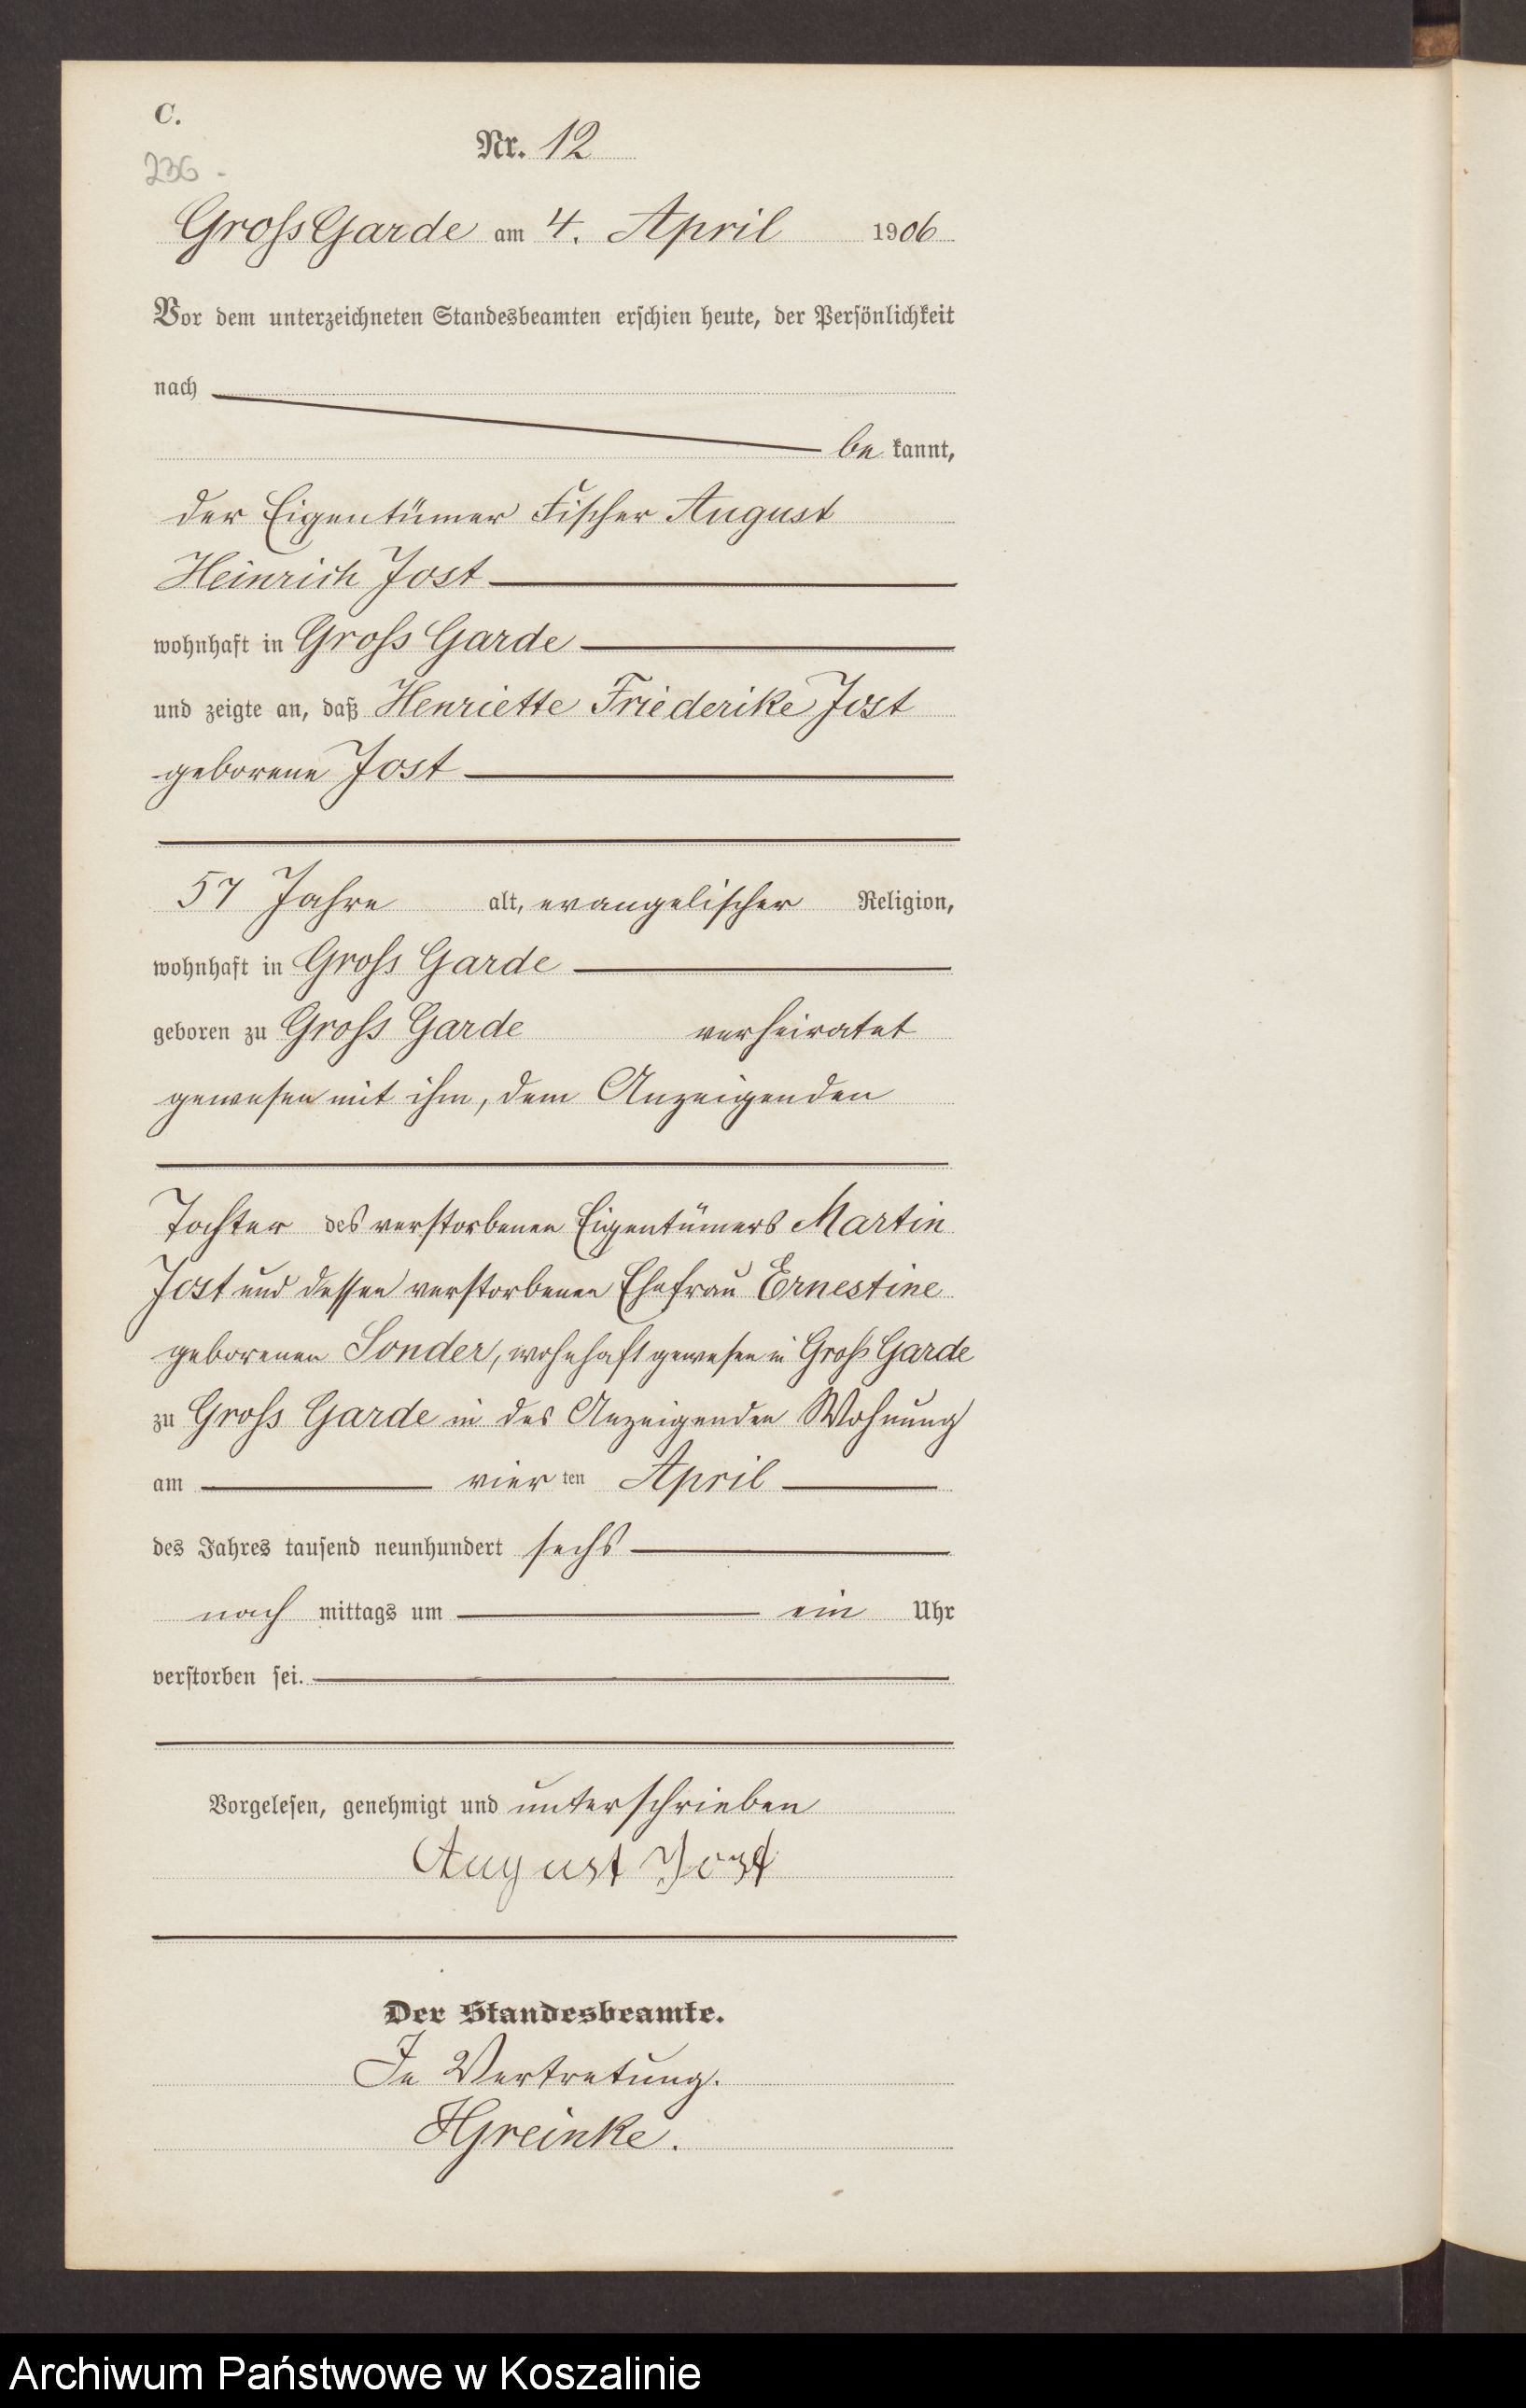 C.
236.
Nr. 12
Gross Garde am 4. April 1906
Vor dem unterzeichneten Standesbeamten erschien heute, der Persönlichkeit
nach
be kannt,
der Eigentümer Fischer August
Heinrich Jost
wohnhaft in Gross Garde
und zeigte an, daß Henriette Friederike Jost
geborene Jost
57 Jahre alt, evangelischer Religion,
wohnhaft in Gross Garde
geboren zu Gross Garde verheiratet
gewesen mit ihm, dem Anzeigenden
Tochter des verstorbenen Eigentümers Martin
Jost und dessen verstorbenen Ehefrau Ernestine
geborenen Sonder, wohnhaft gewesen in Gross Garde
zu Gross Garde in des Anzeigenden Wohnung
am vier ten April
des Jahres tausend neunhundert sechs
nach mittags um ein Uhr
verstorben sei.
Vorgelesen, genehmigt und unterschrieben
August Jost
Der Standesbeamte.
In Vertretung.
HGreinke.
Archiwum Państwowe w Koszalinie